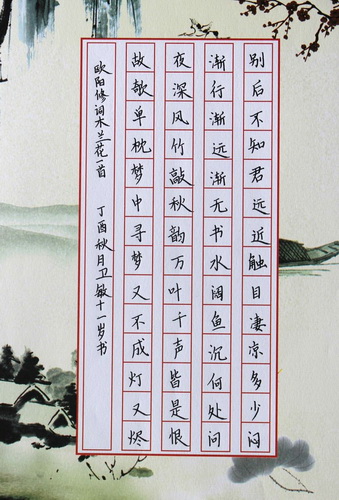 别后不知君远近触目凄凉多少闷
渐行渐远渐无书水阔鱼沉何处问
夜深风竹敲秋韵万叶千声皆是恨
故欹单枕梦中寻梦又不成灯又烬
欧阳修词木兰花一首 丁酉秋月卫敏十一岁书